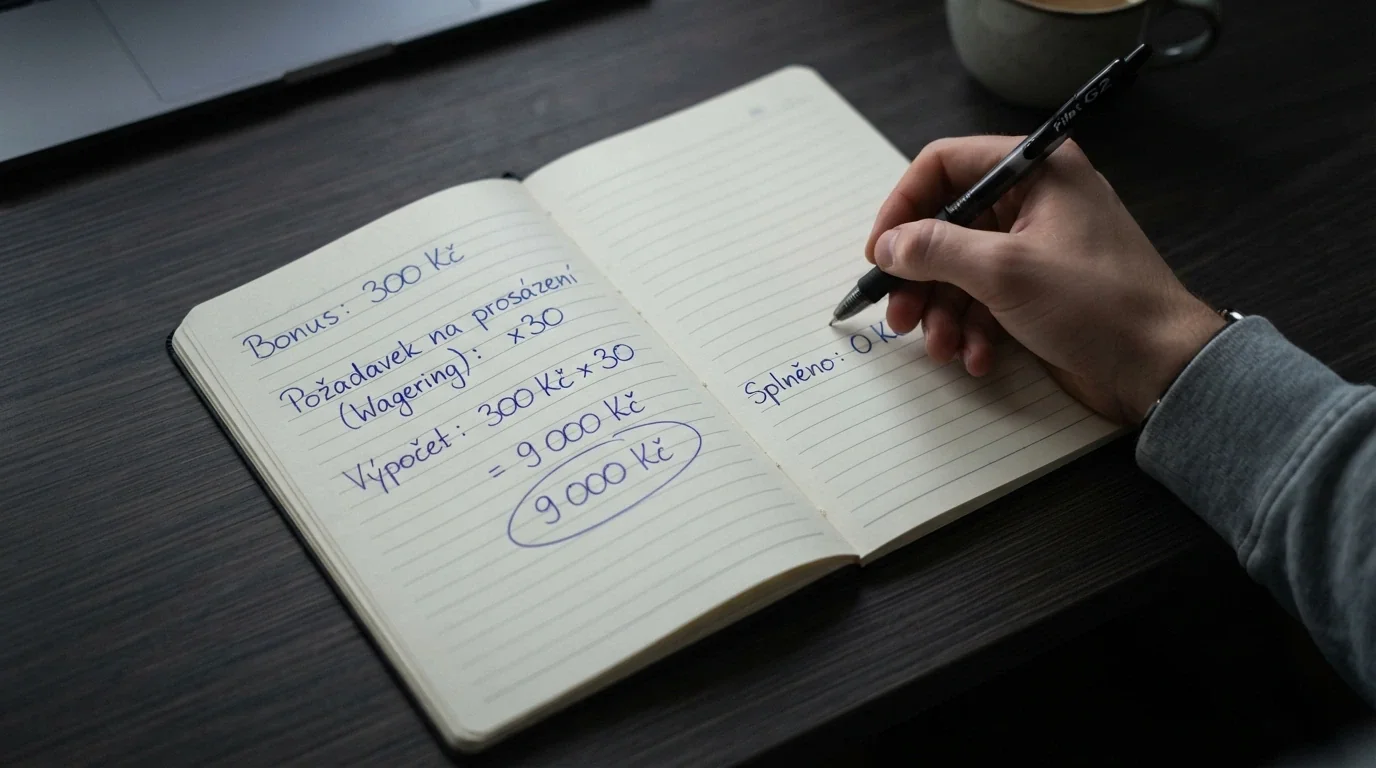 Bonus: 300 Kč
Požadavek na prosázení
(Wagering): x30
Výpočet: 300 Kč × 30
= 9 000 Kč
9 000 Kč
Splněno: 0 Kč
Pilot G2